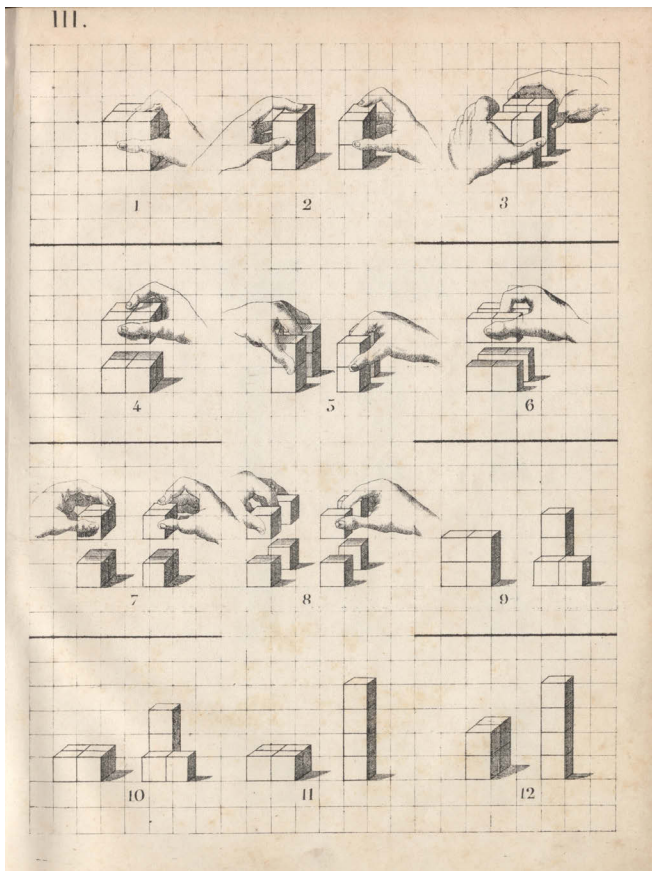 III.
1
2
3
4
5
6
7
8
9
10
11
12